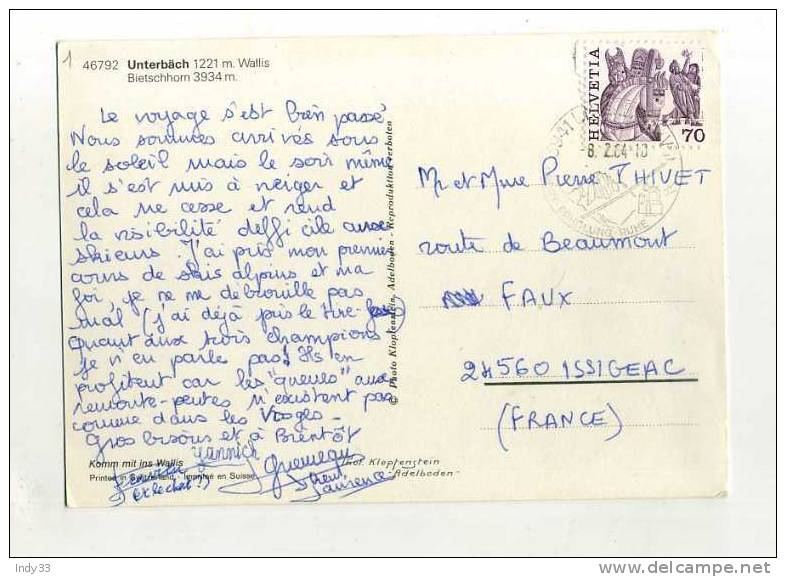 1
46792 Unterbäch 1221 m. Wallis
Bietschhorn 3934 m.
Le voyage s'est bien passé
Nous sommes arrivés sous
le soleil mais le soir même
il s'est mis à neiger et
cela ne cesse et rend
la visibilité difficile aux
skieurs. J'ai pris mon premier
cours de skis alpins et ma
foi, je ne me débrouille pas
mal (j'ai déjà pris le tire-
Quant aux trois champions
je n'en parle pas! Ils en
profitent car les "queues" aux
remonte-pentes n'existent pas
comme dans les Vosges-
Gros bisous et à Bientôt
Yannick
(et le chat!)
Laurence
Komm mit ins Wallis
Printed in Switzerland · Imprimé en Suisse
Phot. Klopfenstein
Adelboden
© Photo Klopfenstein, Adelboden - Reproduktion verboten
HELVETIA
70
8. 2.84-10
ERHOLUNG RUHE
Mr et Mme Pierre THIVET
route de Beaumont
FAUX
24560 ISSIGEAC
(FRANCE)
Indy33
delcampe.net